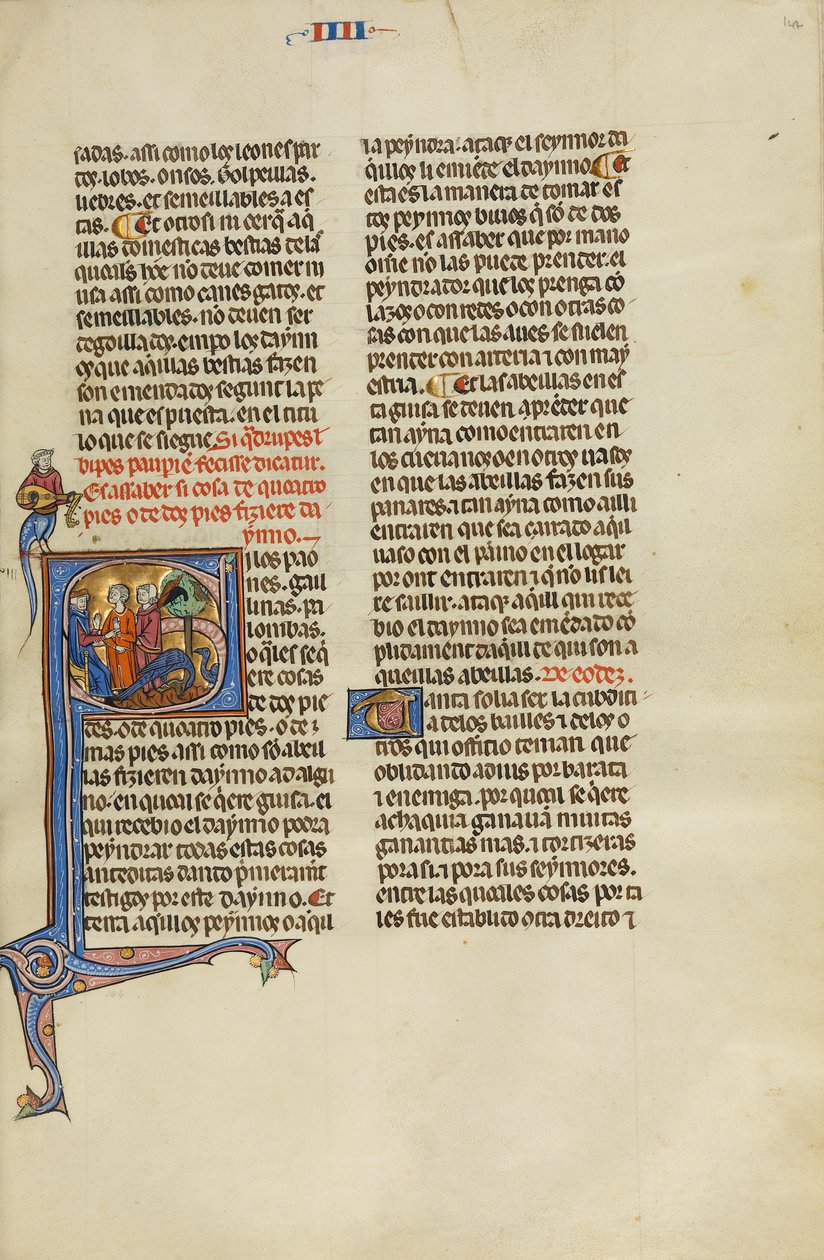 IIII
144
sadas. assi como los leones par
dos. lobos. onsos. Golpeillas.
liebres. et semeillables a es
tas. Et otrosi ni cerq̃ aq̃
illas domesticas bestias delas
quoals hõe nõ deue comer ni
usa assi como canes gatos. et
semeillables. nõ deuen ser
degoillados. empo los daynn
os que aq̃illas bestias fazen
son emendados segunt la pe
na que es puesta. en el titu
lo que se siegue. Si q̃drupes ł
bipes paupiẽ fecisse dicatur.
Es assaber si cosa de quoatro
pies o de dos pies fiziere da
ynno.
Si los pao
nes. gail
linas. pa
lombas.
o q̃les se q̃
ere cosas
de dos pie
des. o de quoatro pies. o de
mas pies assi como sõ abeil
las fizieren daynno ad algu
no. en quoal se q̃ere guisa. el
qui recebio el daynno podra
peyndrar todas estas cosas
anteditas dando p̃merament
testigos por este daynno. Et
terra aq̃illos peynnos o aq̃il
la peyndra. ataq̃ el seynnor da
q̃illos li emiẽde el daynno. Et
esta es la manera de tomar es
tos peynnos biuos q̃ sõ de dos
pies. es assaber que por mano
ome nõ las puede prender. el
peyndrador que los prenga cõ
lazos o con redes o con otras co
sas con que las aues se suelen
prender con arteria ⁊ con may
estria. Et las abeillas en es
ta guisa se deuen aprẽder que
tan ayna como entraren en
los cueuanos o en otros uasos
en que las abeillas fazen sus
panares. ⁊ tan ayna como ailli
entraren que sea çarrado aq̃il
uaso con el pãno en el logar
por ont entraren ⁊ q̃ nõ lis lei
xe saillir. ataq̃ aq̃ill qui rece
bio el daynno sea emẽdado cõ
plidament daq̃il de qui son a
queillas abeillas. De eodez.
Tanta solia ser la cubdici
a delos bailles ⁊ delos o
tros qui officio tenian que
oblidando a dius por barata
⁊ enemiga. por quoal se q̃ere
achaquia ganauã muitas
ganancias mas. ⁊ torticeras
pora si ⁊ pora sus seynnores.
entre las quoales cosas por ta
les fue establido otra dreito ⁊